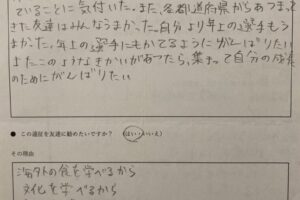 ていることに気付いた。また、各都道府県からあつまって
きた友達はみんなうまかった。自分より年上の選手もう
まかった。年上の選手にもかてるようにがんばりたい
またこのようなきかいがあったら、集まって自分の成長
のためにがんばりたい
● この遠征を友達に勧めたいですか？ (はい・いいえ)
その理由
海外の食を学べるから
文化を学べるから